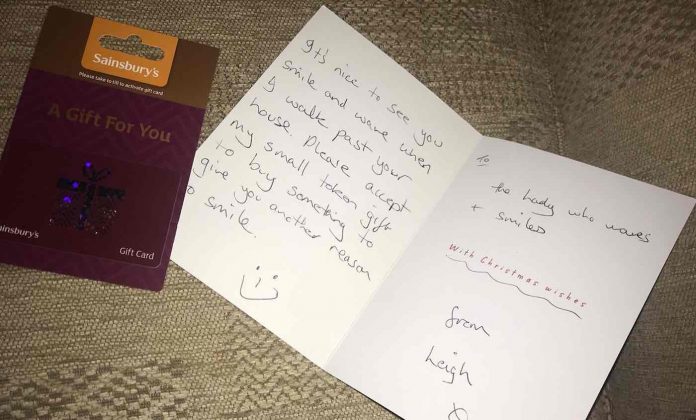 Sainsbury's
Please take to till to activate gift card
A Gift For You
Sainsbury's
Gift Card
It's nice to see you
smile and wave when
I walk past your
house. Please accept
my small token gift
to buy something to
give you another reason
to smile.
To
the lady who waves
+ smiles
With Christmas wishes
from
Leigh
X